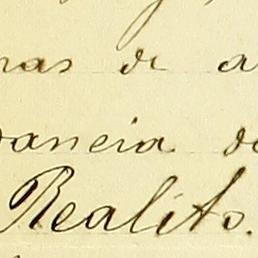 nas de a
dancia de
Realito.